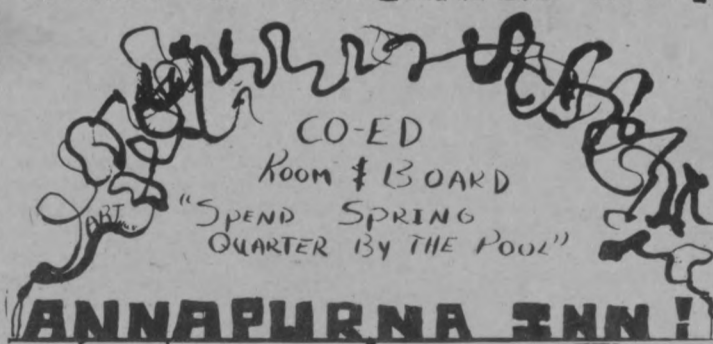 CO-ED
ROOM & BOARD
"SPEND SPRING
QUARTER BY THE POOL"
ART
ANNAPURNA INN!